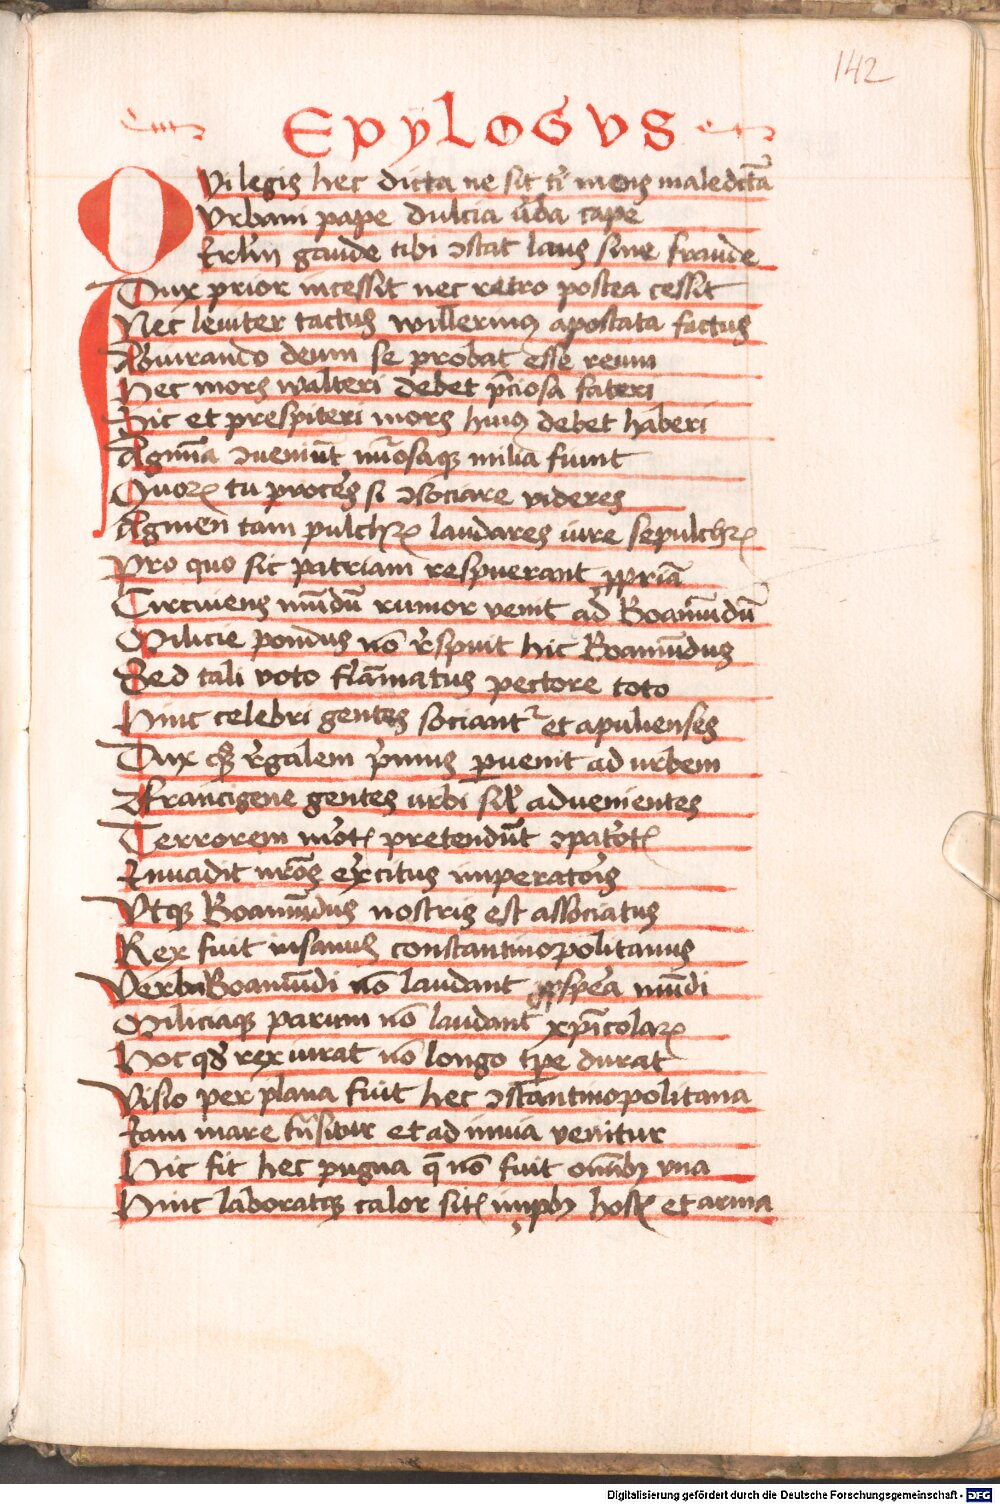 142
EPYLOGVS
QVi legis hec dicta ne sit ti mens maledicta
Vrbani pape dulcia v̄ba cape
gaude tibi ↄstat laus sine fraude
Dux prior incessit nec retro postea cessit
Nec leuiter tactus willermꝰ apostata factus
Abiurando deum se probat esse reum
Hec mors walteri debet p̄ciosa fateri
Hic et prespiteri mors huiꝰ debet haberi
Agmīa ↄueniūt nūosaqꝫ milia fuint
Quoꝝ tu proceres si ↄsociare videres
Agmen tam pulchꝝ laudares iure sepulchꝝ
Pro quo sic patriam respuerant ꝓpriā
Circuiens mūdū rumor venit ad Boamūdū
Milicie pondus nō respuit hic Boamūdus
Sed tali voto flāmatus pectore toto
Huic celebri gentes sociant᷑ et apulienses
Dux qꝫ regalem p̄mus ꝑuenit ad urbem
Francigene gentes urbi sil̄ aduenientes
Terrorem pretendūt
Inuadit nr̄os exercitus imperatoris
Vtqꝫ Boamūdus nostris est associatus
Rex fuit insanus constantinopolitanus
Verba Boamūdi nō laudant ꝓspera mūdi
Miliciaqꝫ parum nō laudant xp̄icolaꝝ
Hoc qd̄ rex iurat nō longo tp̄e durat
Visio per plana fuit hec ↄstantinopolitana
Iam mare trāsitur et ad inuia venitur
Hic fit hec pugna q̄ nō fuit om̄ibꝫ vna
Hinc laboratqꝫ calor sitꝭ hostꝭ et arma
Digitalisierung gefördert durch die Deutsche Forschungsgemeinschaft - DFG